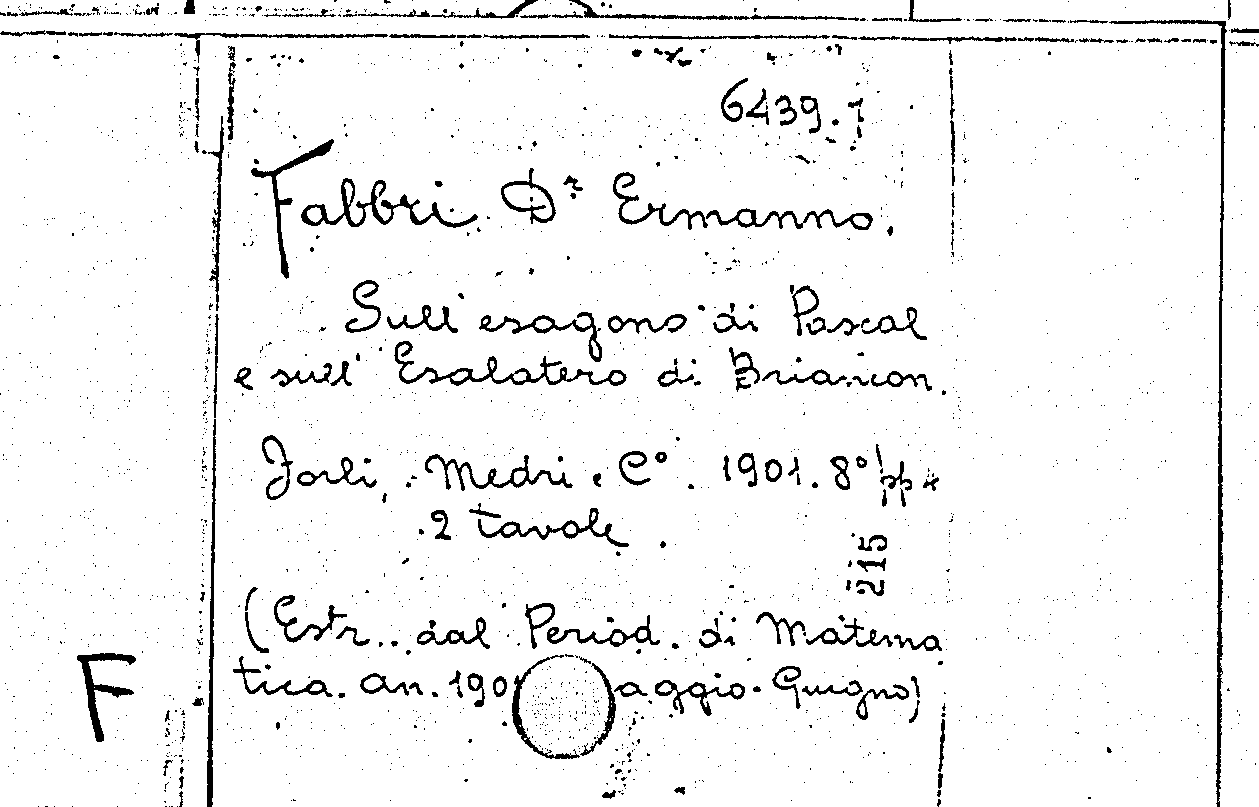 6439.7
Fabbri Dr Ermanno.
Sull'esagono di Pascal
e sull'Esalatero di Briancon.
Forli, Medri e Co. 1901. 8o pp 4
2 tavole.
215
(Estr.. dal Period. di Matema
tica. An. 190 aggio-Giugno)
F